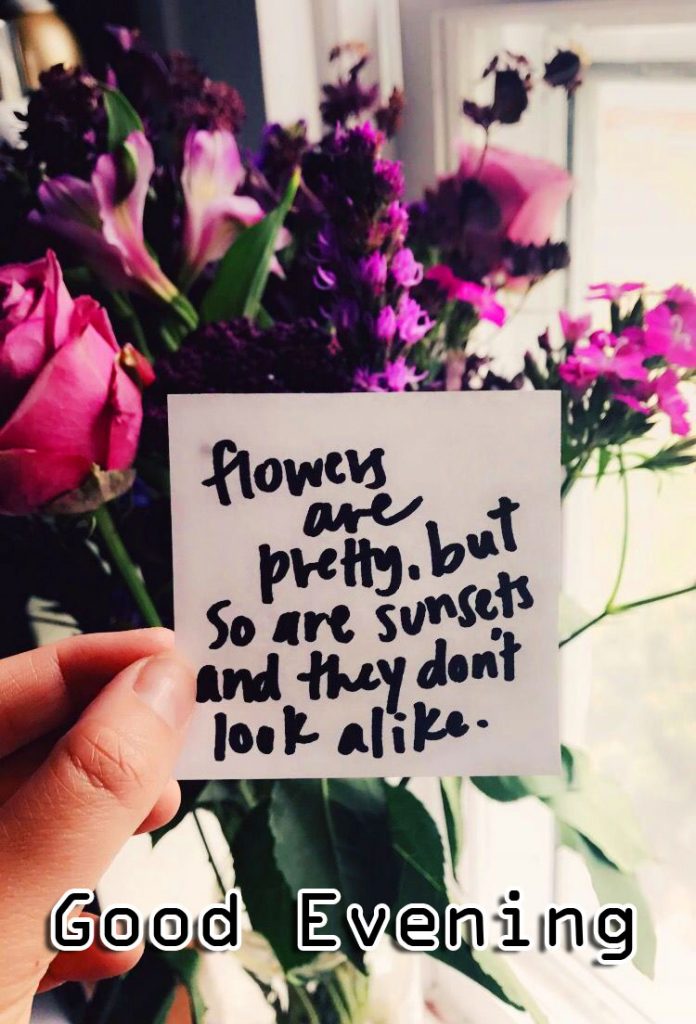 flowers
are
pretty. but
So are sunsets
and they don't
look alike.
Good Evening